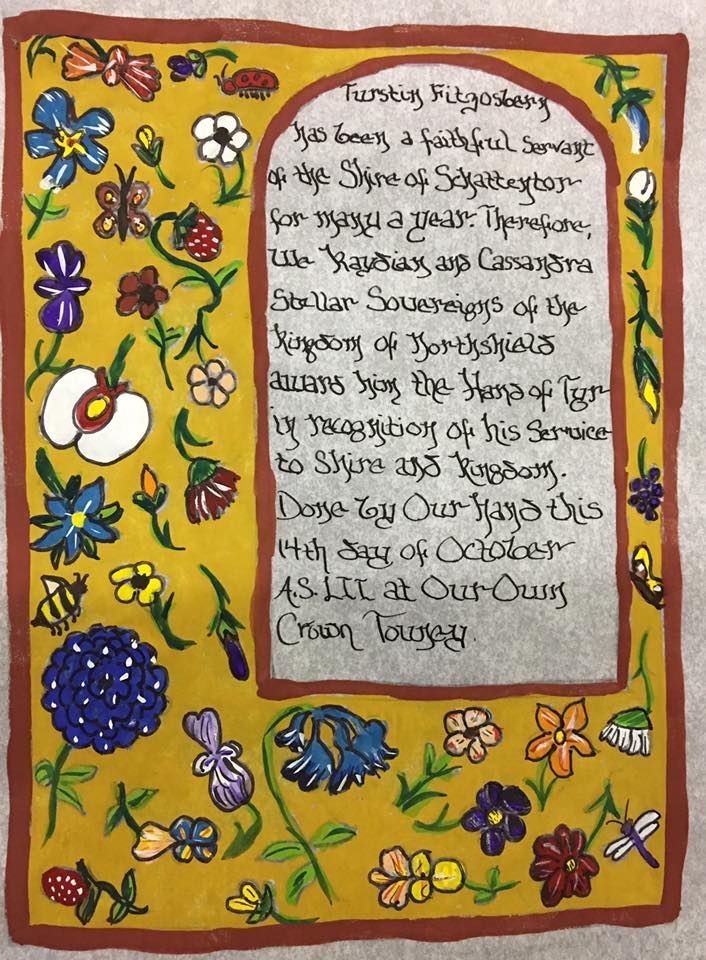 Turstin Fitzosbern
has been a faithful servant
of the Shire of Schattentor
for many a year. Therefore,
We Kaydian and Cassandra
Stellar Sovereigns of the
kingdom of Northshield
award him the Hand of Tyr
in recognition of his Service
to Shire and kingdom.
Done by Our Hand this
14th day of October
A.S. LII at Our Own
Crown Tourney.